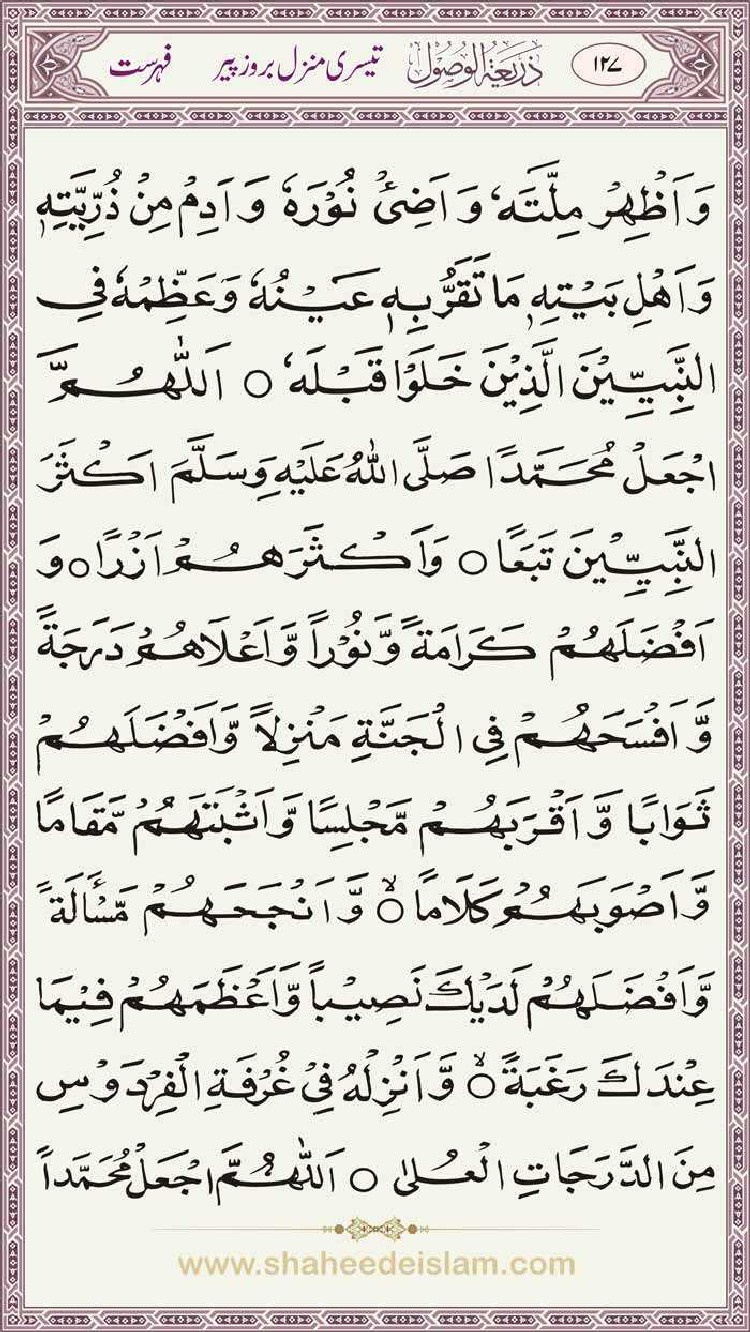 ١٢٧ ذَرِيعَةُ الوُصُول تیسری منزل بروز پیر فہرست
وَاَظْهِرْ مِلَّتَهٗ وَاَضِئْ نُوْرَهٗ وَاَدِمْ مِنْ ذُرِّيَّتِهٖ
وَاَهْلِ بَيْتِهٖ مَا تَقَرُّ بِهٖ عَيْنُهٗ وَعَظِّمْهُ فِی
النَّبِيِّيْنَ الَّذِيْنَ خَلَوْا قَبْلَهٗ ○ اَللّٰهُمَّ
اجْعَلْ مُحَمَّدًا صَلَّى اللّٰهُ عَلَيْهِ وَسَلَّمَ اَكْثَرَ
النَّبِيِّيْنَ تَبَعًا ○ وَاَكْثَرَهُمْ اَزْرًا ○ وَ
اَفْضَلَهُمْ كَرَامَةً وَّنُوْرًا وَّاَعْلَاهُمْ دَرَجَةً
وَّاَفْسَحَهُمْ فِی الْجَنَّةِ مَنْزِلًا وَّاَفْضَلَهُمْ
ثَوَابًا وَّاَقْرَبَهُمْ مَّجْلِسًا وَّاَثْبَتَهُمْ مَّقَامًا
وَّاَصْوَبَهُمْ كَلَامًا ○ۙ وَّاَنْجَحَهُمْ مَّسْأَلَةً
وَّاَفْضَلَهُمْ لَدَيْكَ نَصِيْبًا وَّاَعْظَمَهُمْ فِيْمَا
عِنْدَكَ رَغْبَةً ○ۙ وَّاَنْزِلْهُ فِیْ غُرْفَةِ الْفِرْدَوْسِ
مِنَ الدَّرَجَاتِ الْعُلٰى ○ اَللّٰهُمَّ اجْعَلْ مُحَمَّدًا
www.shaheedeislam.com